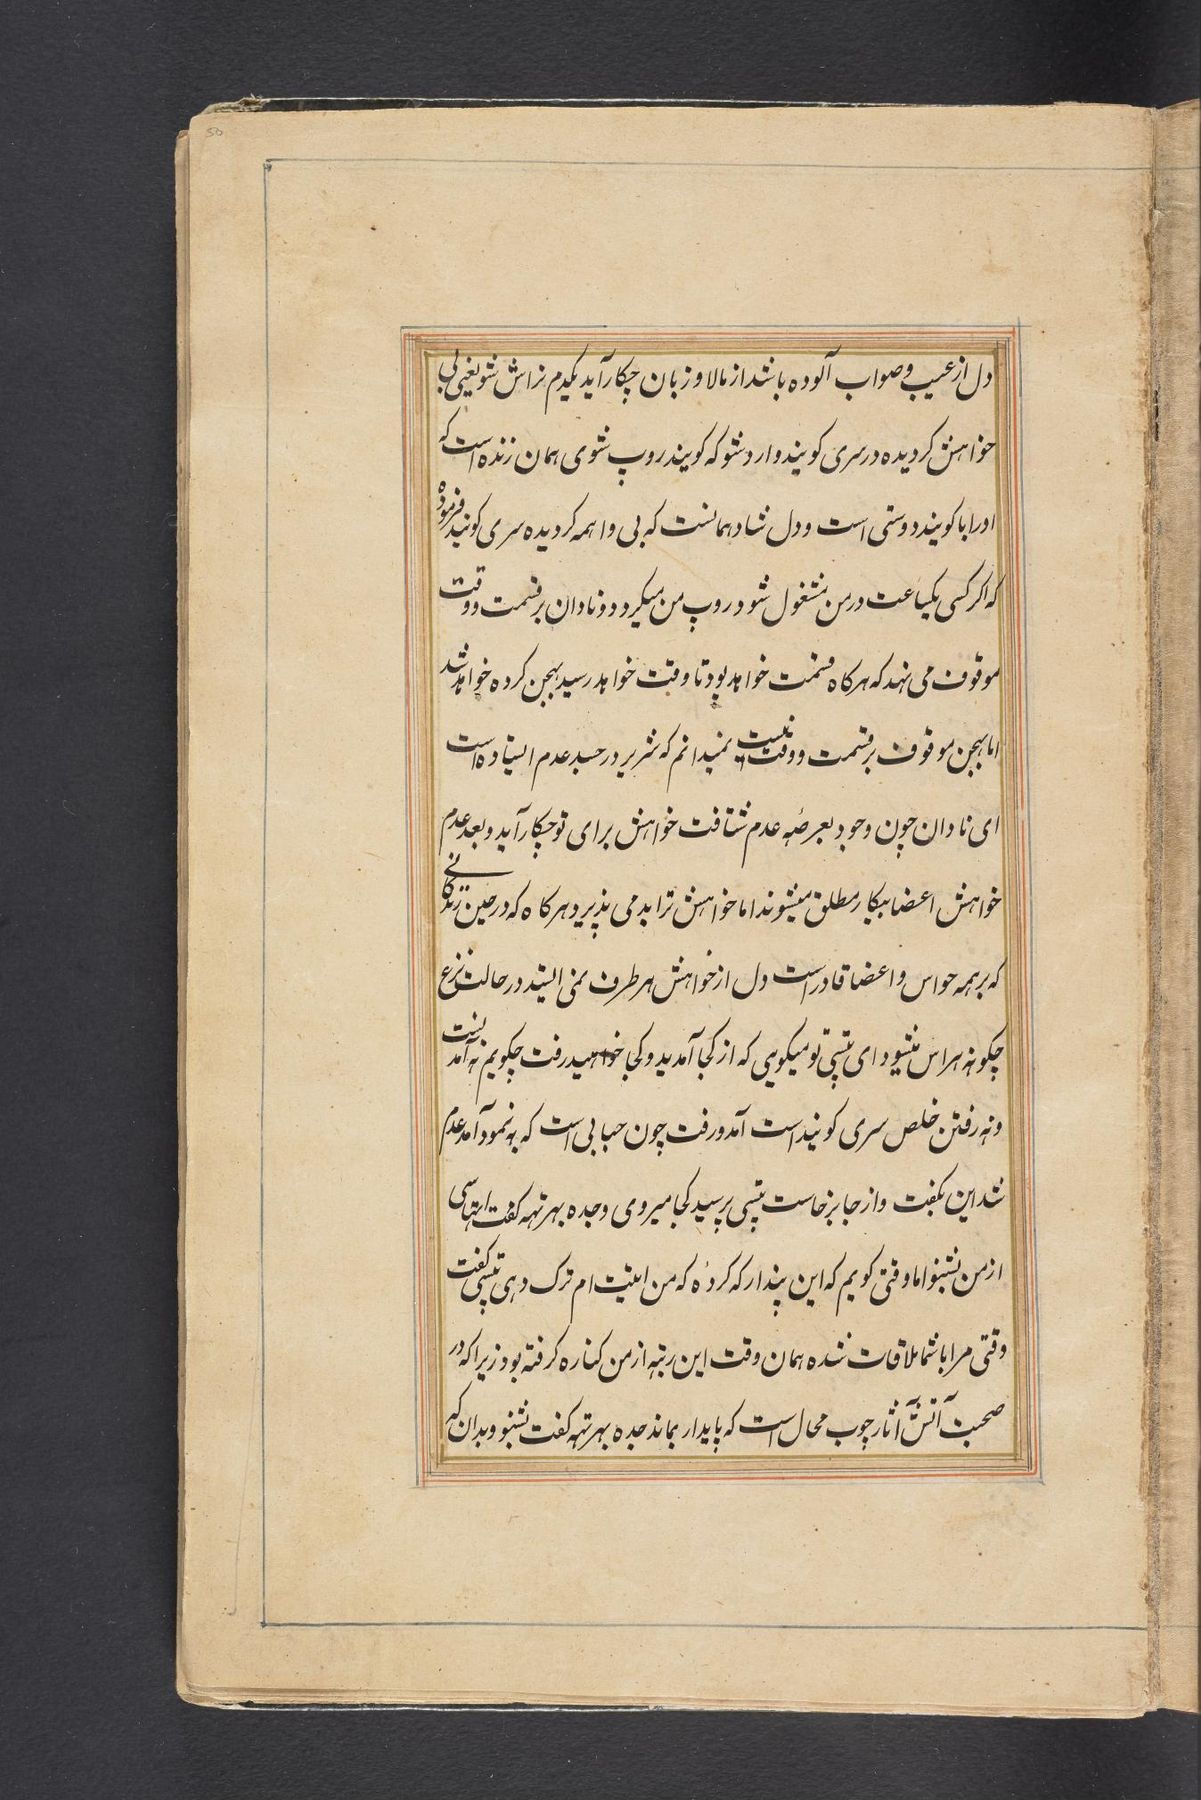 50
دل از عیب و صواب آلوده باشد از مالا و زبان چکار آید یکدم نراش شو یعنی بی
خواهش کردیده در سری کویند وارد شو که کویند روپ شوی همان زنده است که
او را با کویند دوستی است و دل شاد همانست که بی واهمه کردیده سری کویند فرموده
که اکر کسی یکساعت در من مشغول شود روپ من میکردد و نادان بر قسمت و وقت
موقوف می نهد که هرکاه قسمت خواهد بود تا وقت خواهد رسید بهجن کرده خواهد شد
اما بهجن موقوف بر قسمت و وقت نیست نمیدانم که شریر در حسد عدم استاده است
ای نادان چون وجود بعرصه عدم شتافت خواهش برای تو چکار آید و بعد عدم
خواهش اعضا بیکار مطلق میشوند اما خواهش ترا بد می پذیرد هرکاه که در حین زندکانی
که بر همه حواس و اعضا قادر است دل از خواهش هر طرف نمی استد در حالت نزع
چکونه هراس میشود ای تپسی تو میکویی که از کجا آمدید و کجا خواهید رفت چکویم نه آمدنست
و نه رفتن خلص سری کویند است آمد و رفت چون حبابی است که به نمود آمد عدم
شد این بکفت و از جا برخاست تپسی پرسید کجا میروی وجده بهرتهه کفت التماسی
از من بشنو اما وقتی کویم که این پندار که کردهٔ که من اتیت ام ترک دهی تپسی کفت
وقتی مرا با شما ملاقات شده همان وقت این رتبه از من کناره کرفته بود زیرا که در
صحبت آتش آثار چوب محال است که پایدار بماند جده بهرتهه کفت بشنو و بدان که